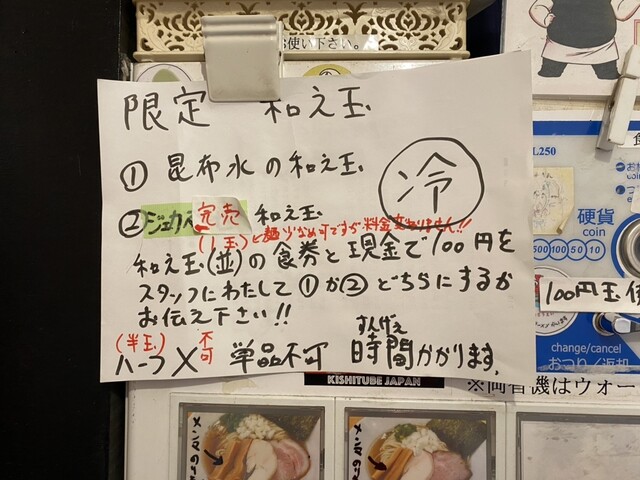 お使い下さい。
限定 和え玉
① 昆布水の和え玉
冷
② ジェカベ 完売 和え玉
(1玉)と麺少なめ可ですが料金変わりません!!
和え玉(並)の食券と現金で100円を
スタッフにわたして①か②どちらにするか
お伝え下さい!!
(半玉) 不可 すんげぇ
ハーフ× 単品不可 時間かかります。
KISHITUBE JAPAN
L250
硬貨
coin
500 100 50 10
100円玉
change/cancel
おつり/返却
※両替機はウォー
メンマ
メンマ